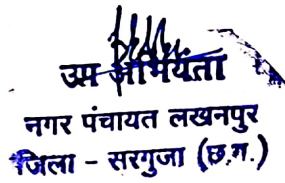 उप अभियंता
नगर पंचायत लखनपुर
जिला - सरगुजा (छ.ग.)